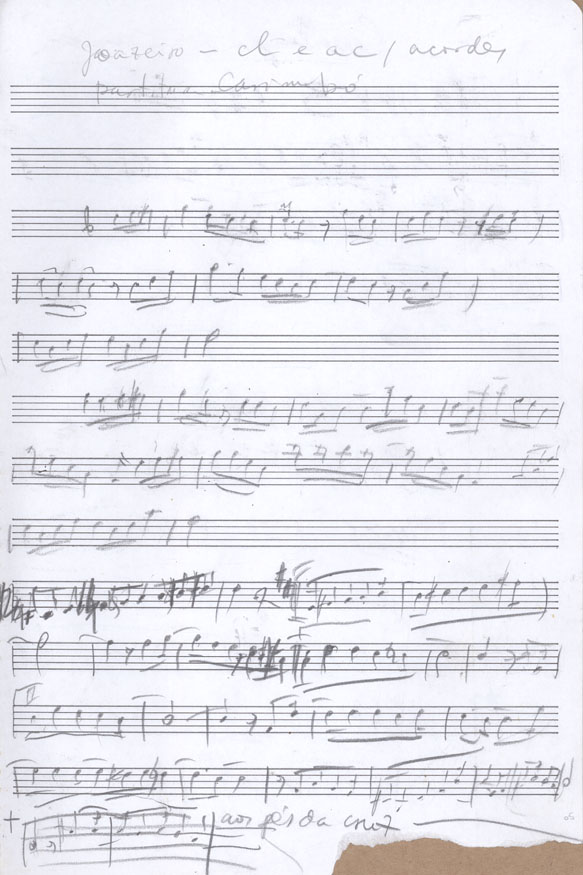 Joazeiro - cl e ac / acordes
partitura Casimbó
aos pés da cruz